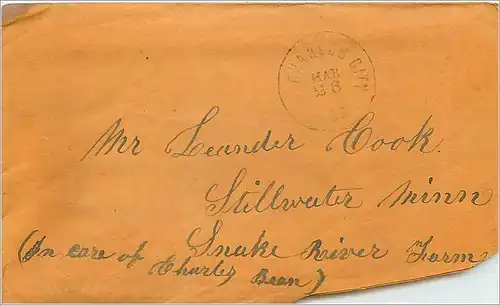 CHARLES CITY
MAR
26
Mr Leander Cook.
Stillwater Minn
(In care of Snake River Farm
Charles Bean)